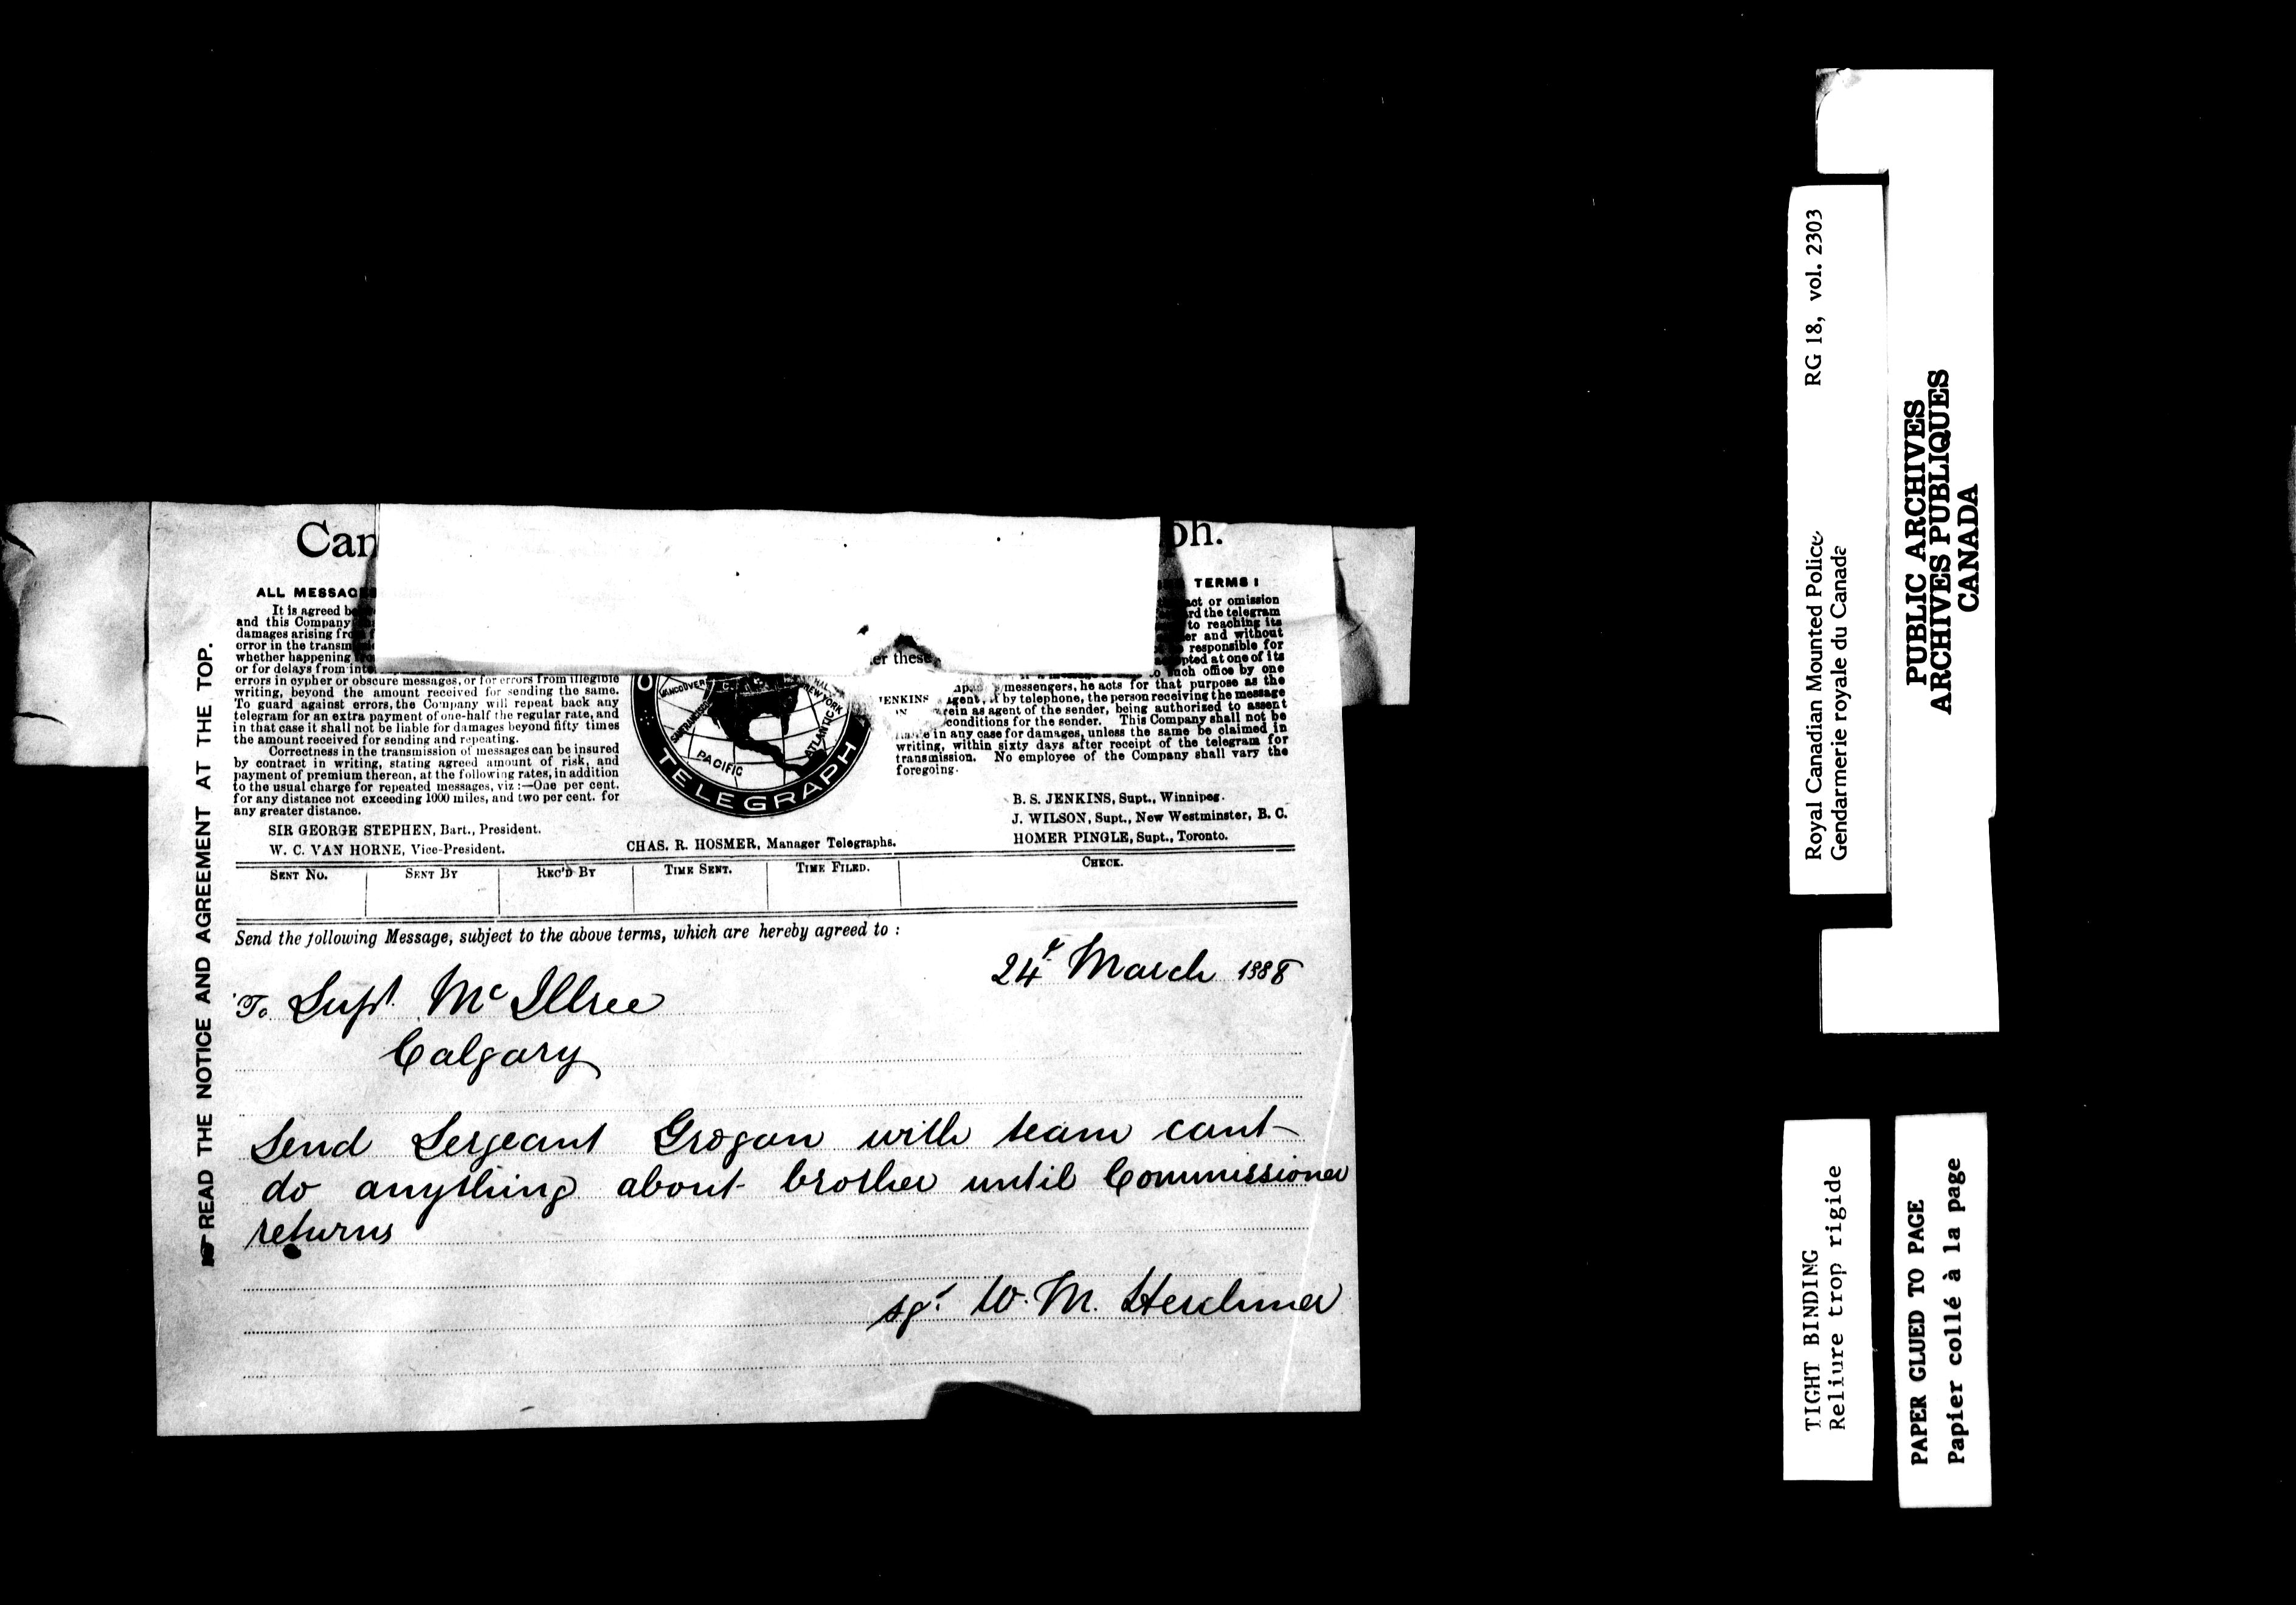 Can ph.
ALL MESSAG TERMS:
It is agreed be
and this Company
damages arising fro
error in the transm
whether happening
or for delays from inte
errors in cypher or obscure messages, or for errors from illegible
writing, beyond the amount received for sending the same.
To guard against errors, the Company will repeat back any
telegram for an extra payment of one-half the regular rate, and
in that case it shall not be liable for damages beyond fifty times
the amount received for sending and repeating.
Correctness in the transmission of messages can be insured
by contract in writing, stating agreed amount of risk, and
payment of premium thereon, at the following rates, in addition
to the usual charge for repeated messages, viz:—One per cent.
for any distance not exceeding 1000 miles, and two per cent. for
any greater distance.
SIR GEORGE STEPHEN, Bart., President.
W. C. VAN HORNE, Vice-President.
VANCOUVER
SAN FRANCISCO
NEW YORK
ATLANTIC
PACIFIC
TELEGRAPH
CHAS. R. HOSMER, Manager Telegraphs.
er these
JENKINS
act or omission
rd the telegram
to reaching its
er and without
responsible for
pted at one of its
such office by one
messengers, he acts for that purpose as the
agent, if by telephone, the person receiving the message
rein as agent of the sender, being authorized to assent
conditions for the sender. This Company shall not be
liable in any case for damages, unless the same be claimed in
writing, within sixty days after receipt of the telegram for
transmission. No employee of the Company shall vary the
foregoing.
B. S. JENKINS, Supt., Winnipeg.
J. WILSON, Supt., New Westminster, B. C.
HOMER PINGLE, Supt., Toronto.
SENT NO. SENT BY REC'D BY TIME SENT. TIME FILED. CHECK.
Send the following Message, subject to the above terms, which are hereby agreed to:
24th March 1888
To Supt. McIllree
Calgary
Send Sergeant Grogan with team cant
do anything about brother until Commissioner
returns
sgd. W. M. Herchmer
READ THE NOTICE AND AGREEMENT AT THE TOP.
Royal Canadian Mounted Police RG 18, vol. 2303
Gendarmerie royale du Canada
PUBLIC ARCHIVES
ARCHIVES PUBLIQUES
CANADA
TIGHT BINDING
Reliure trop rigide
PAPER GLUED TO PAGE
Papier collé à la page